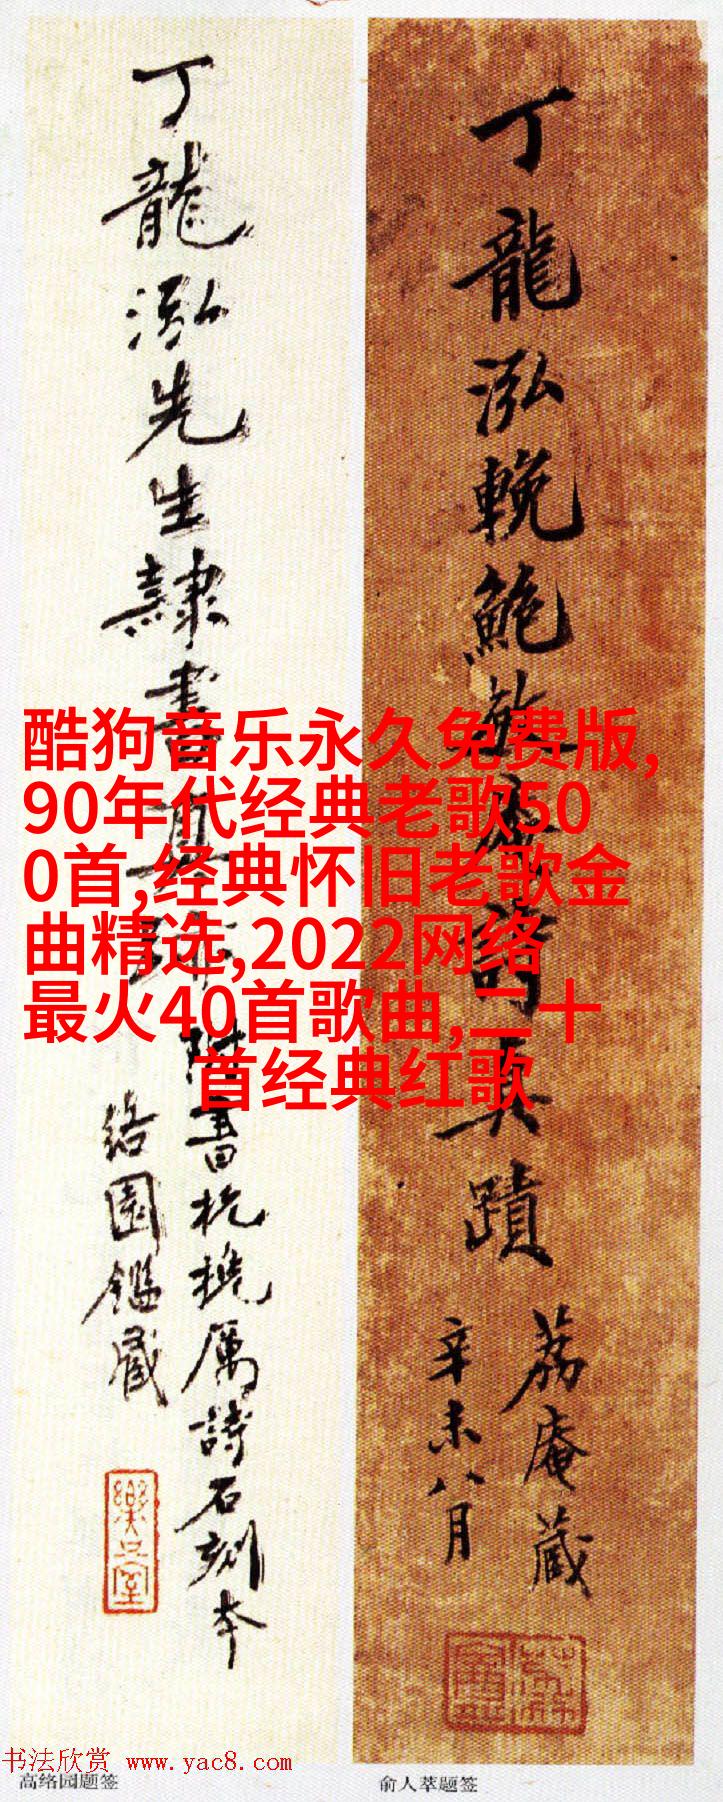 丁龍泓先生隸書真跡
附書杭撓厲詩石刻本
絡園鑑藏
丁龍泓輓鮑敬庵詩真蹟
荔庵藏
辛未八月
酷狗音乐永久免费版,
90年代经典老歌50
0首,经典怀旧老歌金
曲精选,2022网络
最火40首歌曲,二十
首经典红歌
书法欣赏 www.yac8.com
高络园题签
俞人萃题签